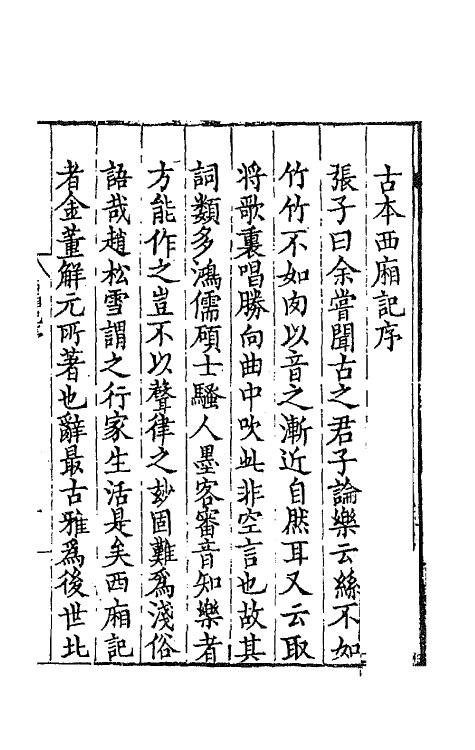 古本西廂記序
張子曰余嘗聞古之君子論樂云絲不如
竹竹不如肉以音之漸近自然耳又云取
將歌裏唱勝向曲中吹此非空言也故其
詞類多鴻儒碩士騷人墨客審音知樂者
方能作之豈不以聲律之玅固難爲淺俗
語哉趙松雪謂之行家生活是矣西廂記
者金董解元所著也辭最古雅爲後世北